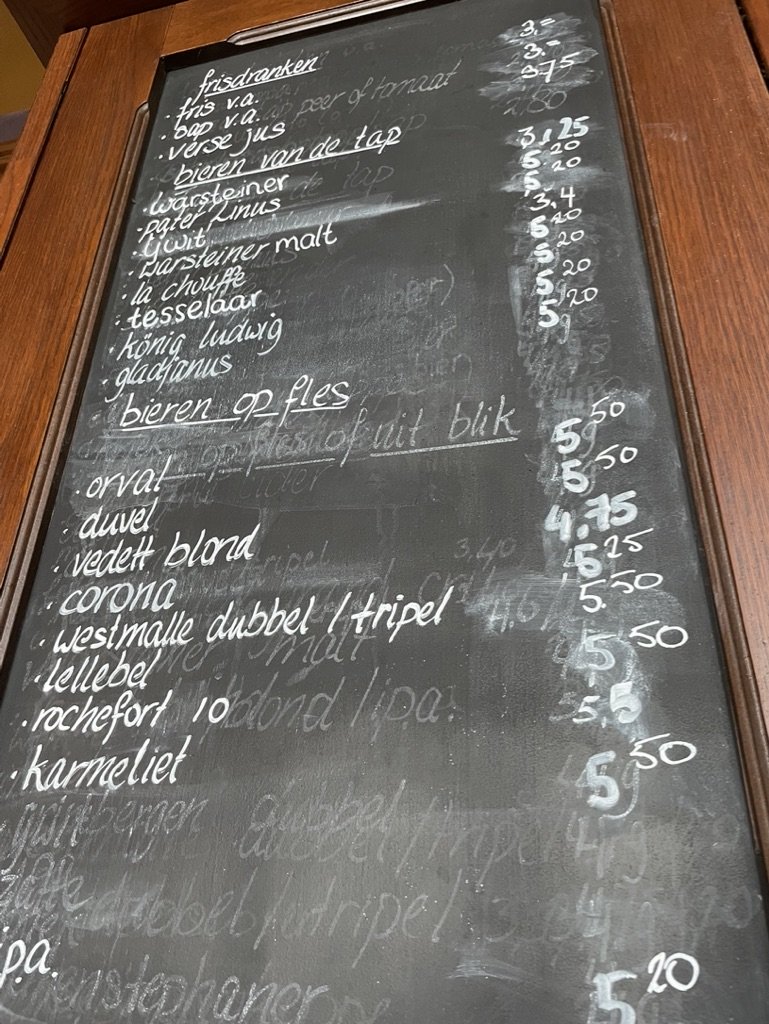 frisdranken
· fris v.a. 3,=
· sap v.a. peer of tomaat 3.=
· verse jus 3.75
2,80
bieren van de tap
· warsteiner 3,25
· pater Linus 5,20
· ywit 5,20
· warsteiner malt 3,4
· la chouffe 5,20
· tesselaar 5,20
· könig ludwig 5,20
· gladjanus 5,20
bieren op fles
op fles of uit blik
· orval 5,50
· duvel 5,50
· vedett blond 4,75
· corona 5,25
· westmalle dubbel / tripel 5.50
· lellebel 5,50
· rochefort 10 5,5
blond i.p.a.
· karmeliet 5,50
dubbel
dubbel / tripel
i.p.a. 5,20